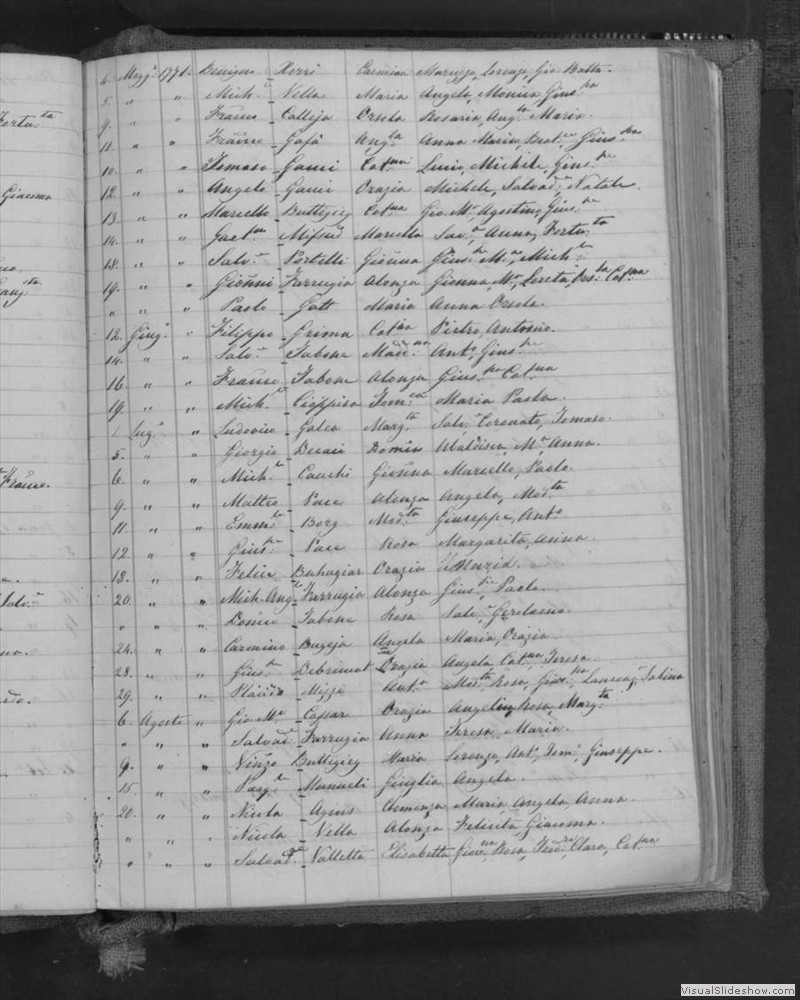 Fortu.ta
Giacoma
Franc.
Salv.r
4. Magg.o 1771. Benigno Xerri Carmina Maruzza, Lorenzo, Gio: Batta.
5. " " Mich.l Vella Maria Angela, Monica, Gius.pa
9. " " Franco Calleja Orsola Rosaria, Ang.la Maria.
11. " " Franco Gafà Ang.la Anna Maria, Beat.ce Gius.pa
10. " " Tomaso Gauci Cat.na Lucio, Michele, Gius.pe
12. " " Angelo Gauci Orazia Michele, Salvad.r Natale.
13. " " Marcello Buttigieg Cat.na Gio: M.a Agostino, Gius.pe
14. " " Gaet.no Mifsud Marcella Sav.a Anna, Fortu.ta
18. " " Salv.r Portelli Gio'nna Gius.pe M.a Mich.l
19. " " Gio'nni Farrugia Alonza Gionna M.a Loreta, Ors.la Cat.na
" " " Paolo Gatt Maria Anna Orsola.
12. Giug.o " Filippo Grima Cat.na Pietro, Antonio.
14. " " Salv.r Tabone Madd.na Ant.o Gius.pe
16. " " Franco Tabone Alonza Gius.pa Cat.na
19. " " Mich.l Cioppisa Tom.ca Maria Paola.
1. Lug.o " Ludovico Galea Marg.ta Salv.r Coronato, Tomaso.
5. " " Giorgio Decaii Romin Ubaldesca, M.a Anna.
6. " " Mich.l Cauchi Gio'nna Marcello, Paolo.
9. " " Matteo Pace Alonza Angelo, Mod.ta
11. " " Emm.le Borg Mod.ta Giuseppe, Ant.o
12. " " Gius.pe Pace Rosa Margarita, Anna.
18. " " Felice Buhagiar Orazia Nunzia.
20. " " Mich. Ang.lo Farrugia Alonza Gius.pe Paolo.
" " " Dom.co Tabone Rosa Salv.r Girolamo.
24. " " Carmino Bugeja Angela Maria, Orazia.
28. " " Gius.pe Debrincat Orazia Angela, Cat.na Teresa.
29. " " Placido Mizzi Ant.a Mod.ta, Rosa, Gius.pa Laurenz.a Sabina
6. Agosto " Gio: M.a Cassar Orazia Angelica, Rosa, Marg.ta
" " " Salvad.r Farrugia Anna Teresa, Maria.
9. " " Vinzo Buttigieg Maria Lorenzo, Ant.o Tom.o Giuseppe.
15. " " Pasq.le Manueli Giuglia Angela.
20. " " Nicola Agius Clemenza Maria, Angela, Anna.
" " " Nicola Vella Alonza Felicita, Giacoma.
" " " Salvad.r Valletta Elisabetta Giov.na Rosa, Teod.ra Clara, Cat.na
VisualSlideshow.com